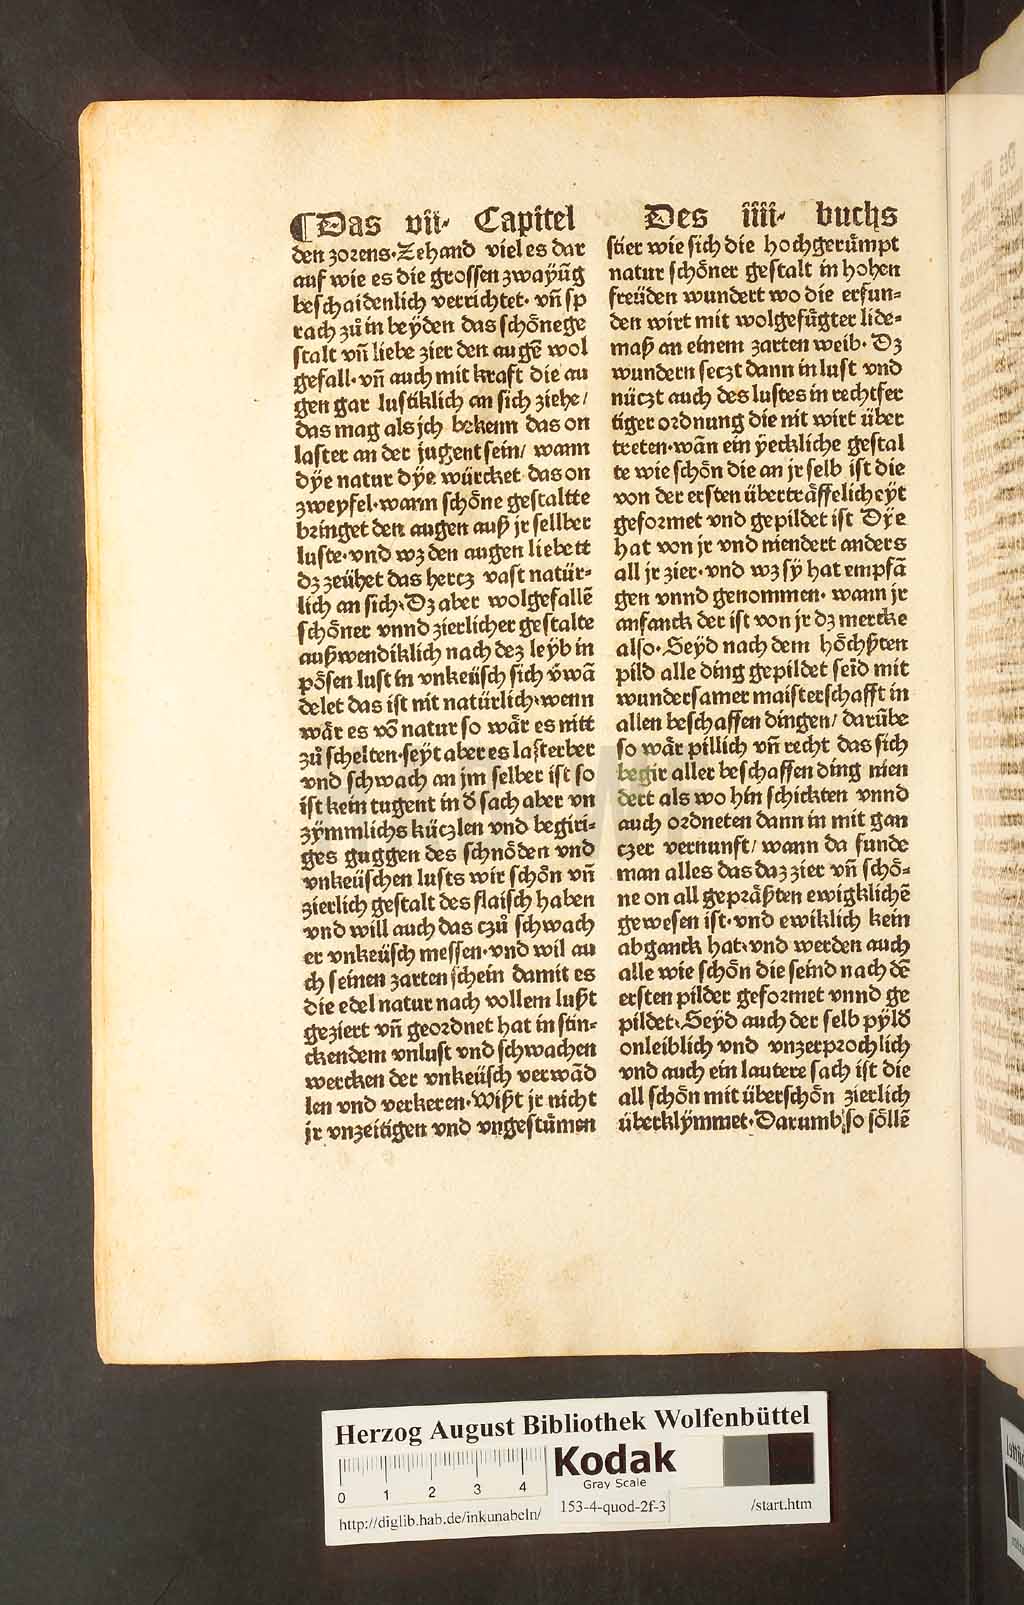 ¶Das vii· Capitel
den zorens·Zehand viel es dar
auf wie es die grossen zwayũg
beschaidenlich verrichtet· vñ sp
rach zů in beÿden das schõnege
stalt vñ liebe zier den augẽ wol
gefall·vñ auch mit kraft die au
gen gar lustiklich an sich ziehe/
das mag als jch bekenn das on
laster an der jugent sein/ wann
dÿe natur dÿe würcket das on
zweyfel·wann schõne gestaltte
bringet den augen auß jr sellber
luste·vnd wz den augen liebett
dz zeühet das hercz vast natür⸗
lich an sich·Dz aber wolgefallẽ
schõner vnnd zierlicher gestalte
außwendiklich nach dez leÿb in
põsen lust in vnkeüsch sich v̾wã
delet das ist nit natürlich·wenn
wår es võ natur so wår es nitt
zů schelten·seÿt aber es lasterber
vnd schwach an jm selber ist so
ist kein tugent in d̾ sach aber vn
zÿmmlichs küczlen vnd begiri⸗
ges guggen des schnõden vnd
vnkeüschen lusts wir schõn vñ
zierlich gestalt des flaisch haben
vnd will auch das czů schwach
er vnkeüsch messen·vnd wil au
ch seinen zarten schein damit es
die edel natur nach vollem lußt
geziert vñ geordnet hat in stin⸗
ckendem vnlust vnd schwachen
wercken der vnkeüsch verwãd
len vnd verkeren·Wißt jr nicht
jr vnzeitigen vnd vngestůmen
Des iiii· buchs
stier wie sich die hochgerůmpt
natur schõner gestalt in hohen
freüden wundert wo die erfun⸗
den wirt mit wolgefůgter lide⸗
maß an einem zarten weib· Dz
wundern seczt dann in lust vnd
nüczt auch des lustes in rechtfer
tiger ordnung die nit wirt über
treten·wãn ein ÿeckliche gestal
te wie schõn die an jr selb ist die
von der ersten überträffelicheyt
geformet vnd gepildet ist Dÿe
hat von jr vnd niendert anders
all jr zier·vnd wz sÿ hat empfã
gen vnnd genommen· wann jr
anfanck der ist von jr dz mercke
also·Seÿd nach dem hõchßten
pild alle ding gepildet seid mit
wundersamer maisterschafft in
allen beschaffen dingen/ darũbe
so wår pillich vñ recht das sich
begir aller beschaffen ding nien
dert als wo hin schickten vnnd
auch ordneten dann in mit gan
czer vernunft/ wann da funde
man alles das daz zier vñ schõ⸗
ne on all gepräßten ewigklichẽ
gewesen ist·vnd ewiklich kein
abganck hat·vnd werden auch
alle wie schõn die seind nach dẽ
ersten pilder geformet vnnd ge
pildet·Seÿd auch der selb pÿld
onleiblich vnd vnzerprochlich
vnd auch ein lautere sach ist die
all schõn mit überschõn zierlich
überklÿmmet·Darumb so sõllẽ
Herzog August Bibliothek Wolfenbüttel
0 1 2 3 4
Kodak
Gray Scale
http://diglib.hab.de/inkunabeln/
153-4-quod-2f-3
/start.htm